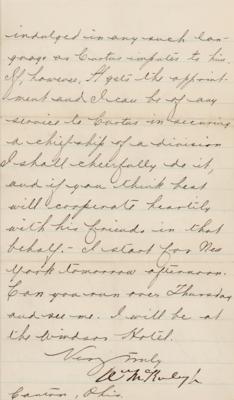 indulged in any such lan-
guage as Curtis imputes to him.
If, however, H gets the appoint-
ment and I can be of any
service to Curtis in securing
a chiefship of a division
I shall cheerfully do it,
and if you think best
will cooperate heartily
with his friends in that
behalf.- I start for New
York tomorrow afternoon.
Can you run over Thursday
and see me. I will be at
the Windsor Hotel.
Very truly
Wm McKinley Jr
Canton, Ohio.